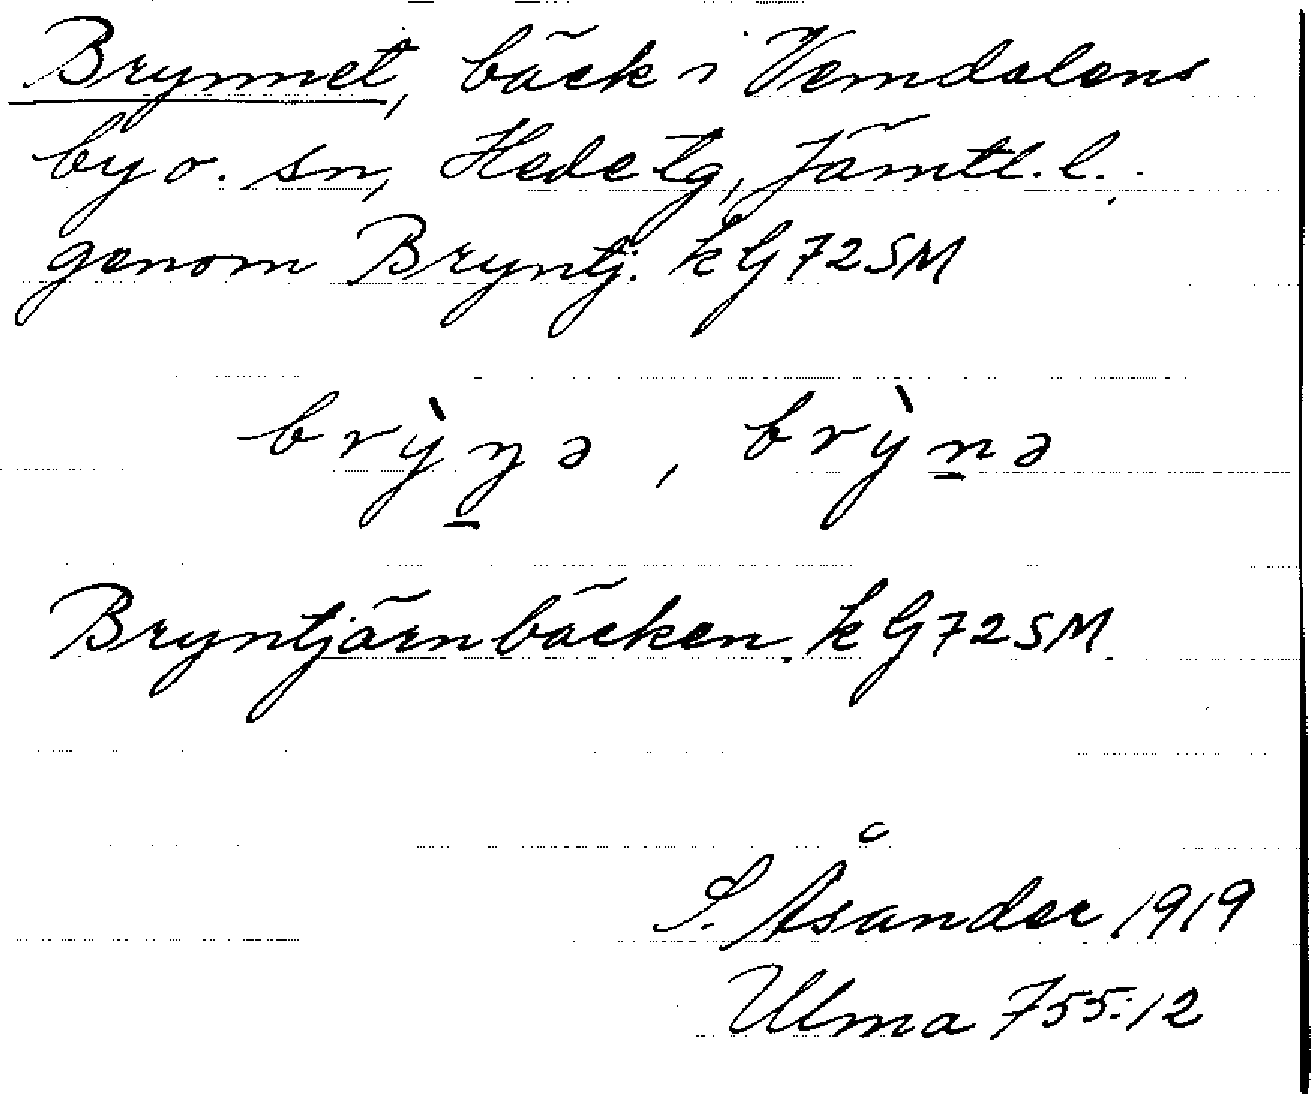 Brynnet, bäck i Vemdalens
by o. sn, Hede tg, Jämtl. l.
genom Bryntj. k G72SM
brỳn̲ə, brỳn̲ə
Bryntjärnbäcken. k G72SM
S. Åsander 1919
Ulma 755:12